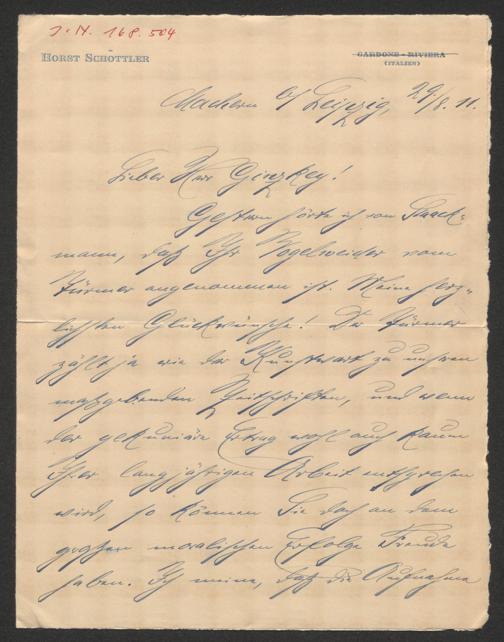 J. N. 168.504
HORST SCHÖTTLER
GARDONE-RIVIERA
(ITALIEN)
Machern b/ Leipzig, 29/8. 11.
Lieber Herr Ginzkey!
Gestern hörte ich von Staack-
mann, daß Ihr Vogelweider vom
Türmer angenommen ist. Meine herz-
lichsten Glückwünsche! Der Türmer
zählt ja wie der Kunstwart zu unseren
maßgebenden Zeitschriften, und wenn
der pekuniäre Ertrag wohl auch kaum
Ihrer langjährigen Arbeit entsprechen
wird, so können Sie doch an dem
großen moralischen Erfolge Freude
haben. Ich meine, daß die Aufnahme